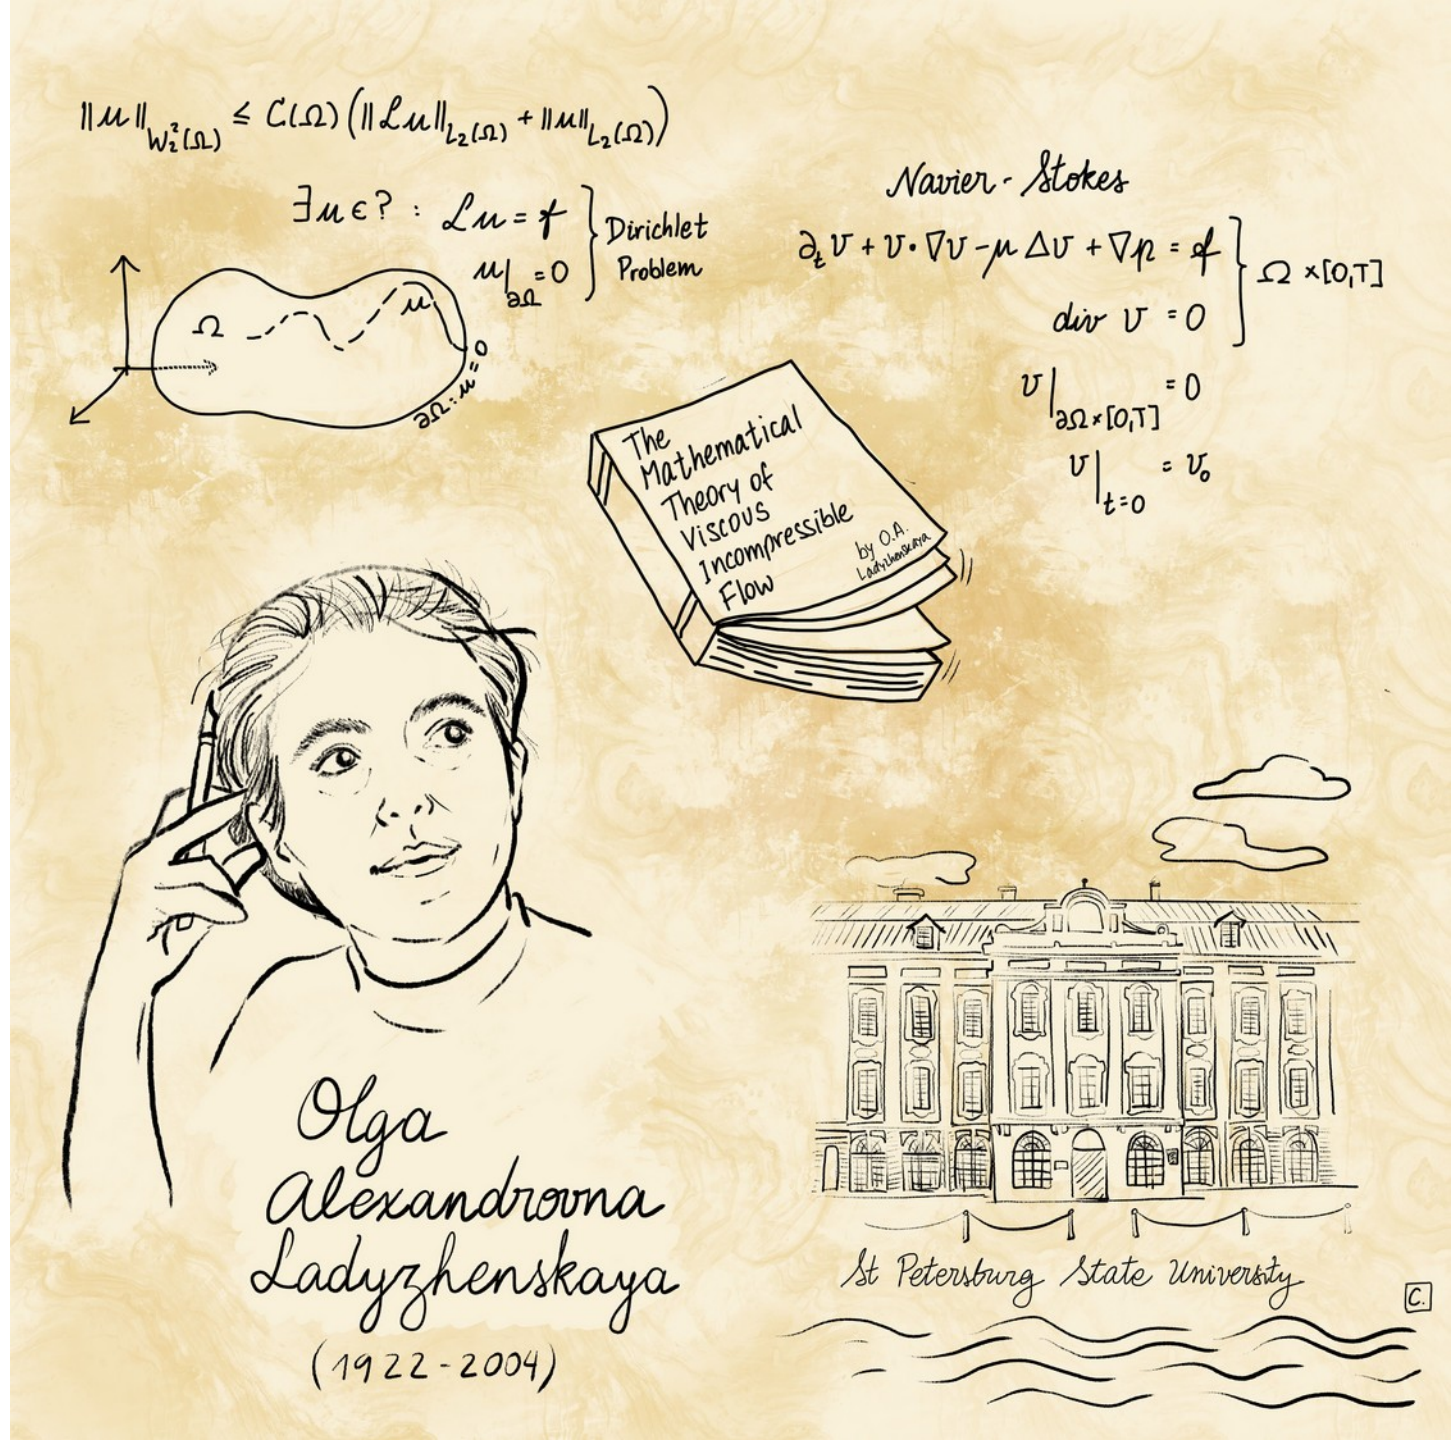 ‖u‖_{W_2^2(Ω)} ≤ C(Ω) (‖ℒu‖_{L_2(Ω)} + ‖u‖_{L_2(Ω)})
∃u∈? : ℒu = f } Dirichlet Problem
u|_{∂Ω} = 0
Ω
u
∂Ω: u = 0
Navier - Stokes
∂_t v + v · ∇v - μ Δv + ∇p = f } Ω × [0,T]
div v = 0
v|_{∂Ω×[0,T]} = 0
v|_{t=0} = v_0
The
Mathematical
Theory of
Viscous
Incompressible
Flow
by O.A.
Ladyzhenskaya
Olga
Alexandrovna
Ladyzhenskaya
(1922-2004)
St Petersburg State University
C.